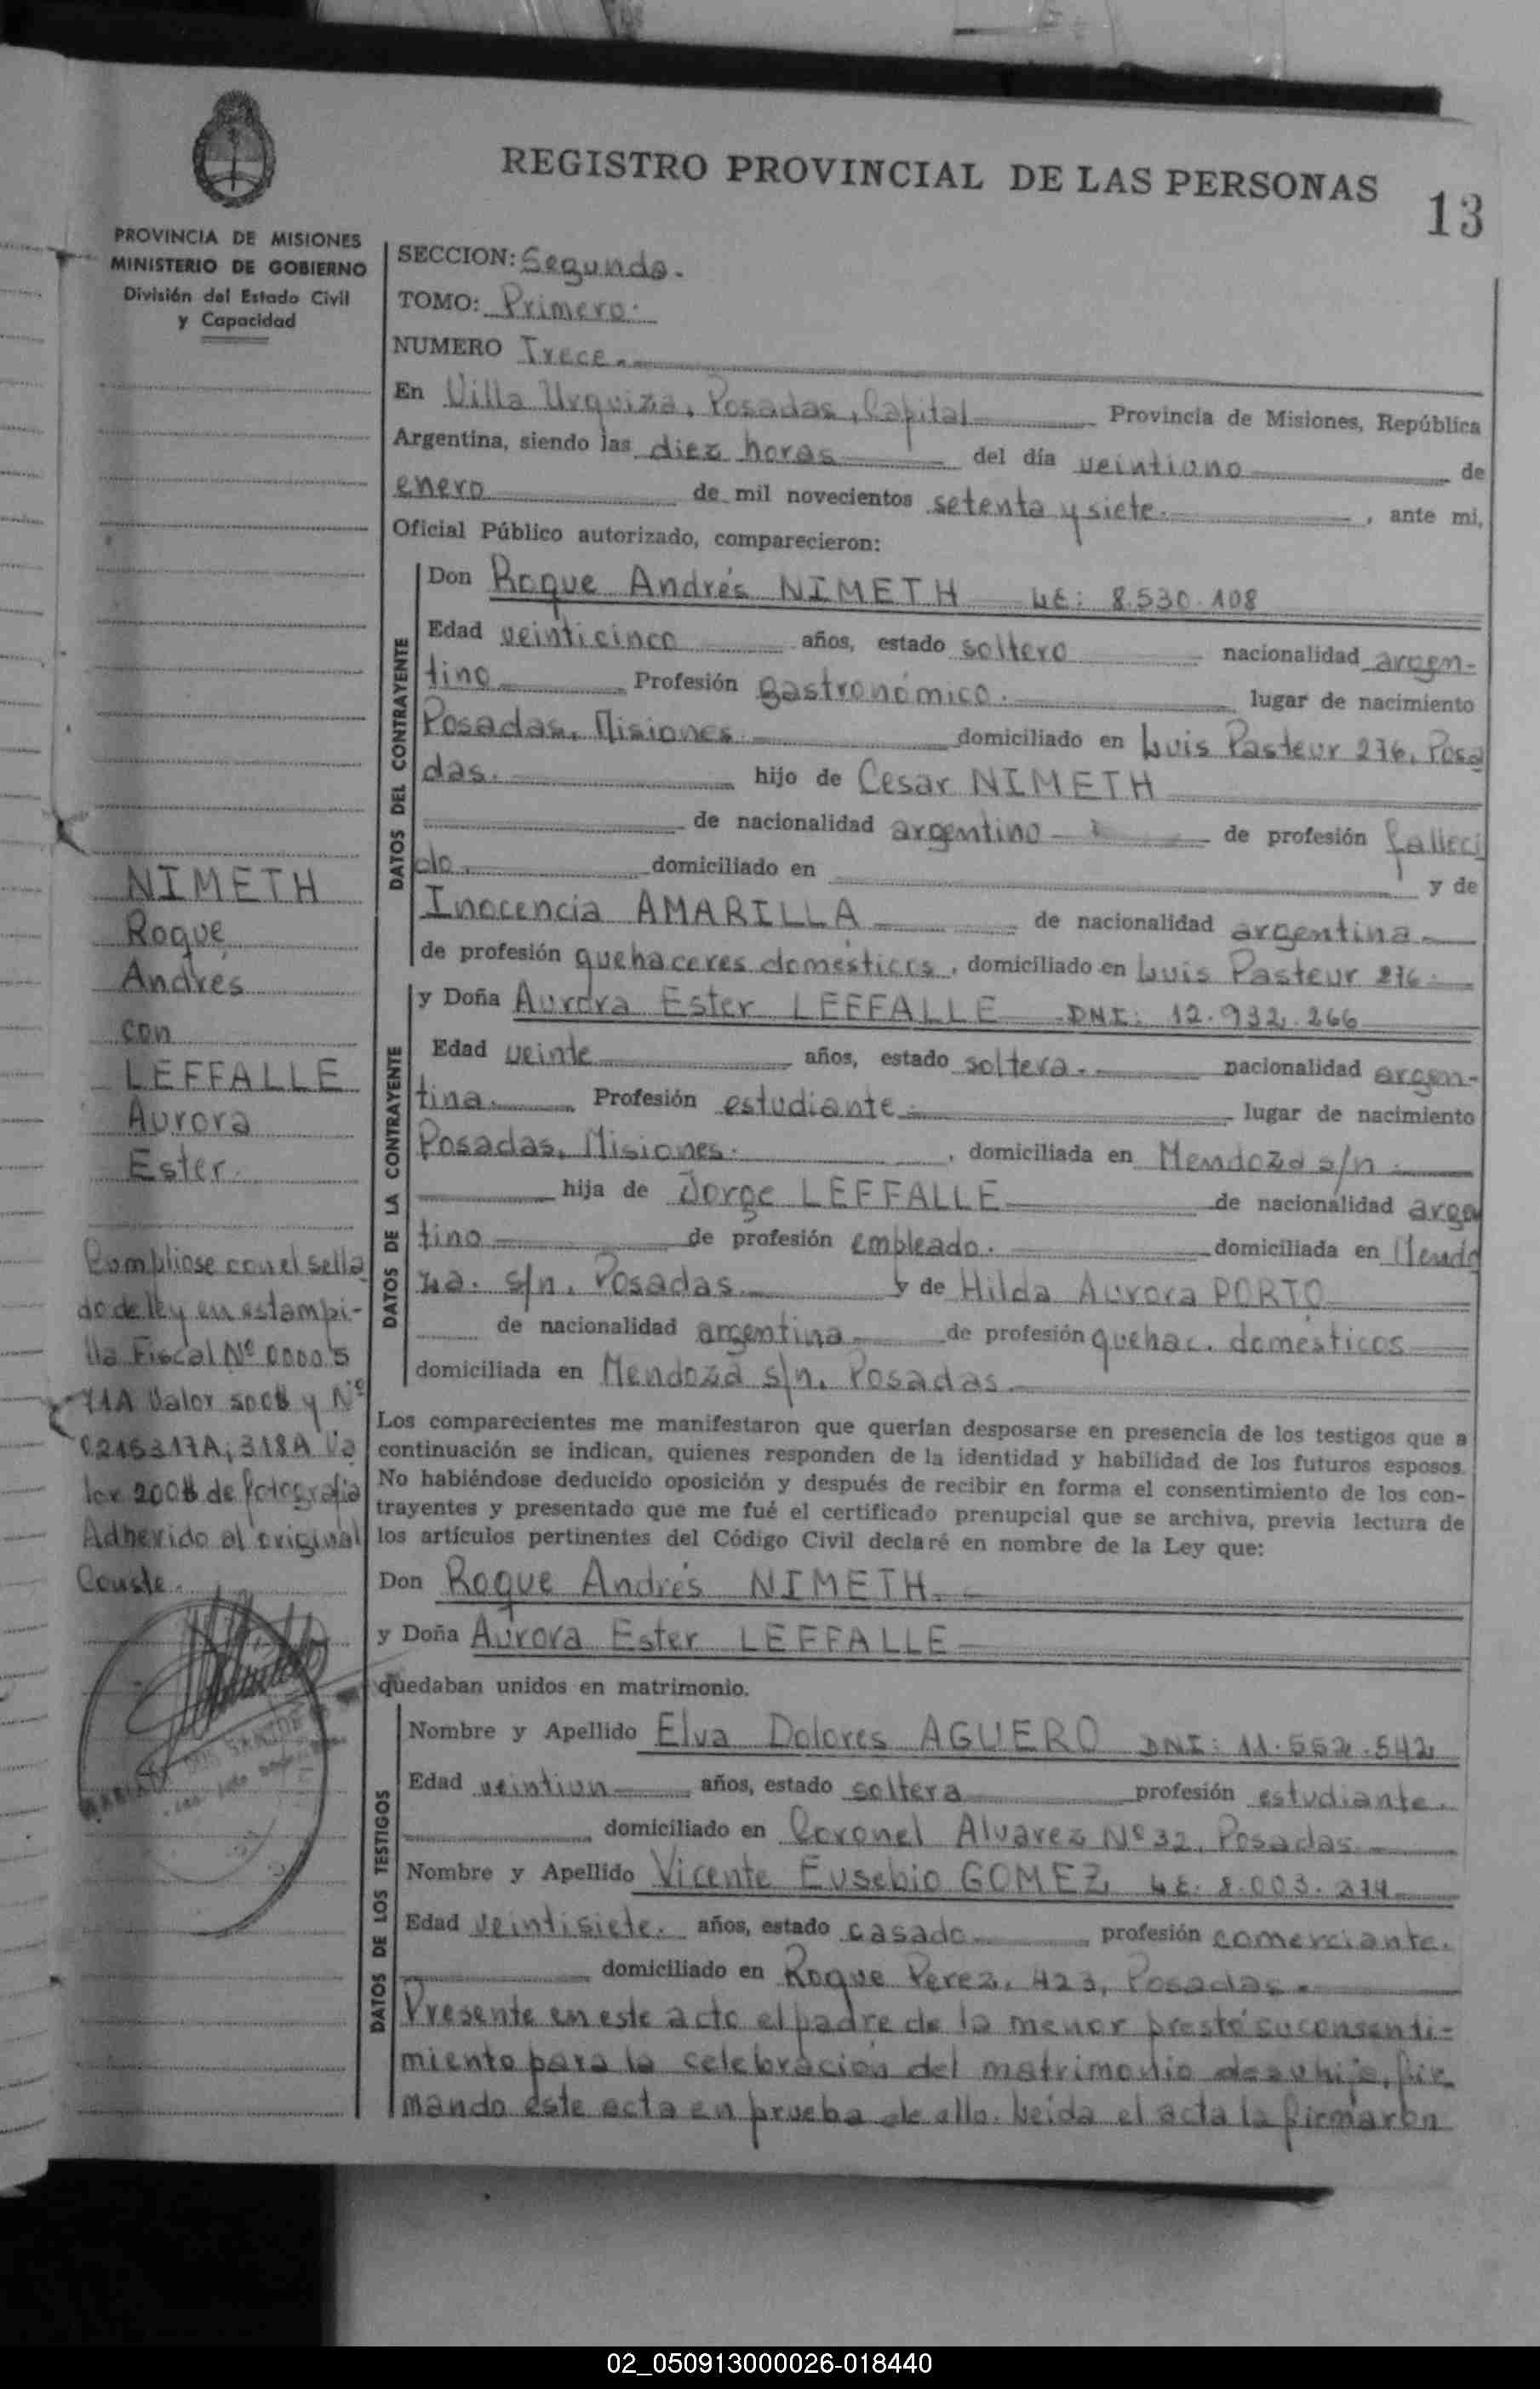 REGISTRO PROVINCIAL DE LAS PERSONAS
13
PROVINCIA DE MISIONES
MINISTERIO DE GOBIERNO
División del Estado Civil
y Capacidad
SECCION: Segunda.
TOMO: Primero.
NUMERO Trece.
En Villa Urquiza, Posadas, Capital Provincia de Misiones, República
Argentina, siendo las diez horas del día veintiuno de
enero de mil novecientos setenta y siete. , ante mi,
Oficial Público autorizado, comparecieron:
DATOS DEL CONTRAYENTE
Don Roque Andrés NIMETH LE: 8.530.108
Edad veinticinco años, estado soltero nacionalidad argen-
tino Profesión gastronómico. lugar de nacimiento
Posadas, Misiones domiciliado en Luis Pasteur 276, Posa
das. hijo de Cesar NIMETH
de nacionalidad argentino de profesión falleci
do. domiciliado en y de
Inocencia AMARILLA de nacionalidad argentina
de profesión quehaceres domésticos, domiciliado en Luis Pasteur 276
DATOS DE LA CONTRAYENTE
y Doña Aurora Ester LEFFALLE DNI: 12.932.266
Edad veinte años, estado soltera. nacionalidad argen-
tina. Profesión estudiante. lugar de nacimiento
Posadas, Misiones. , domiciliada en Mendoza s/n.
hija de Jorge LEFFALLE de nacionalidad argen
tino de profesión empleado. domiciliada en Mendo
za. s/n, Posadas y de Hilda Aurora PORTO
de nacionalidad argentina de profesión quehac. domésticos
domiciliada en Mendoza s/n, Posadas
Los comparecientes me manifestaron que querían desposarse en presencia de los testigos que a
continuación se indican, quienes responden de la identidad y habilidad de los futuros esposos.
No habiéndose deducido oposición y después de recibir en forma el consentimiento de los con-
trayentes y presentado que me fué el certificado prenupcial que se archiva, previa lectura de
los artículos pertinentes del Código Civil declaré en nombre de la Ley que:
Don Roque Andrés NIMETH.
y Doña Aurora Ester LEFFALLE
quedaban unidos en matrimonio.
DATOS DE LOS TESTIGOS
Nombre y Apellido Elva Dolores AGUERO DNI: 11.552.542
Edad veintiun años, estado soltera profesión estudiante.
domiciliado en Coronel Alvarez Nº 32, Posadas
Nombre y Apellido Vicente Eusebio GOMEZ LE. 8.003.214
Edad veintisiete. años, estado casado profesión comerciante.
domiciliado en Roque Perez. 423, Posadas.
Presente en este acto el padre de la menor prestó su consenti-
miento para la celebración del matrimonio de su hija, fir
mando este acta en prueba de ello. Leida el acta la firmaron
NIMETH
Roque
Andres
con
LEFFALLE
Aurora
Ester.
Cumpliose con el sella
do de ley en estampi-
lla Fiscal Nº 00005
71A Valor 500$ y Nº
0215317A, 318A Va
lor 200$ de fotografia
Adherido al original
Conste.
02_050913000026-018440